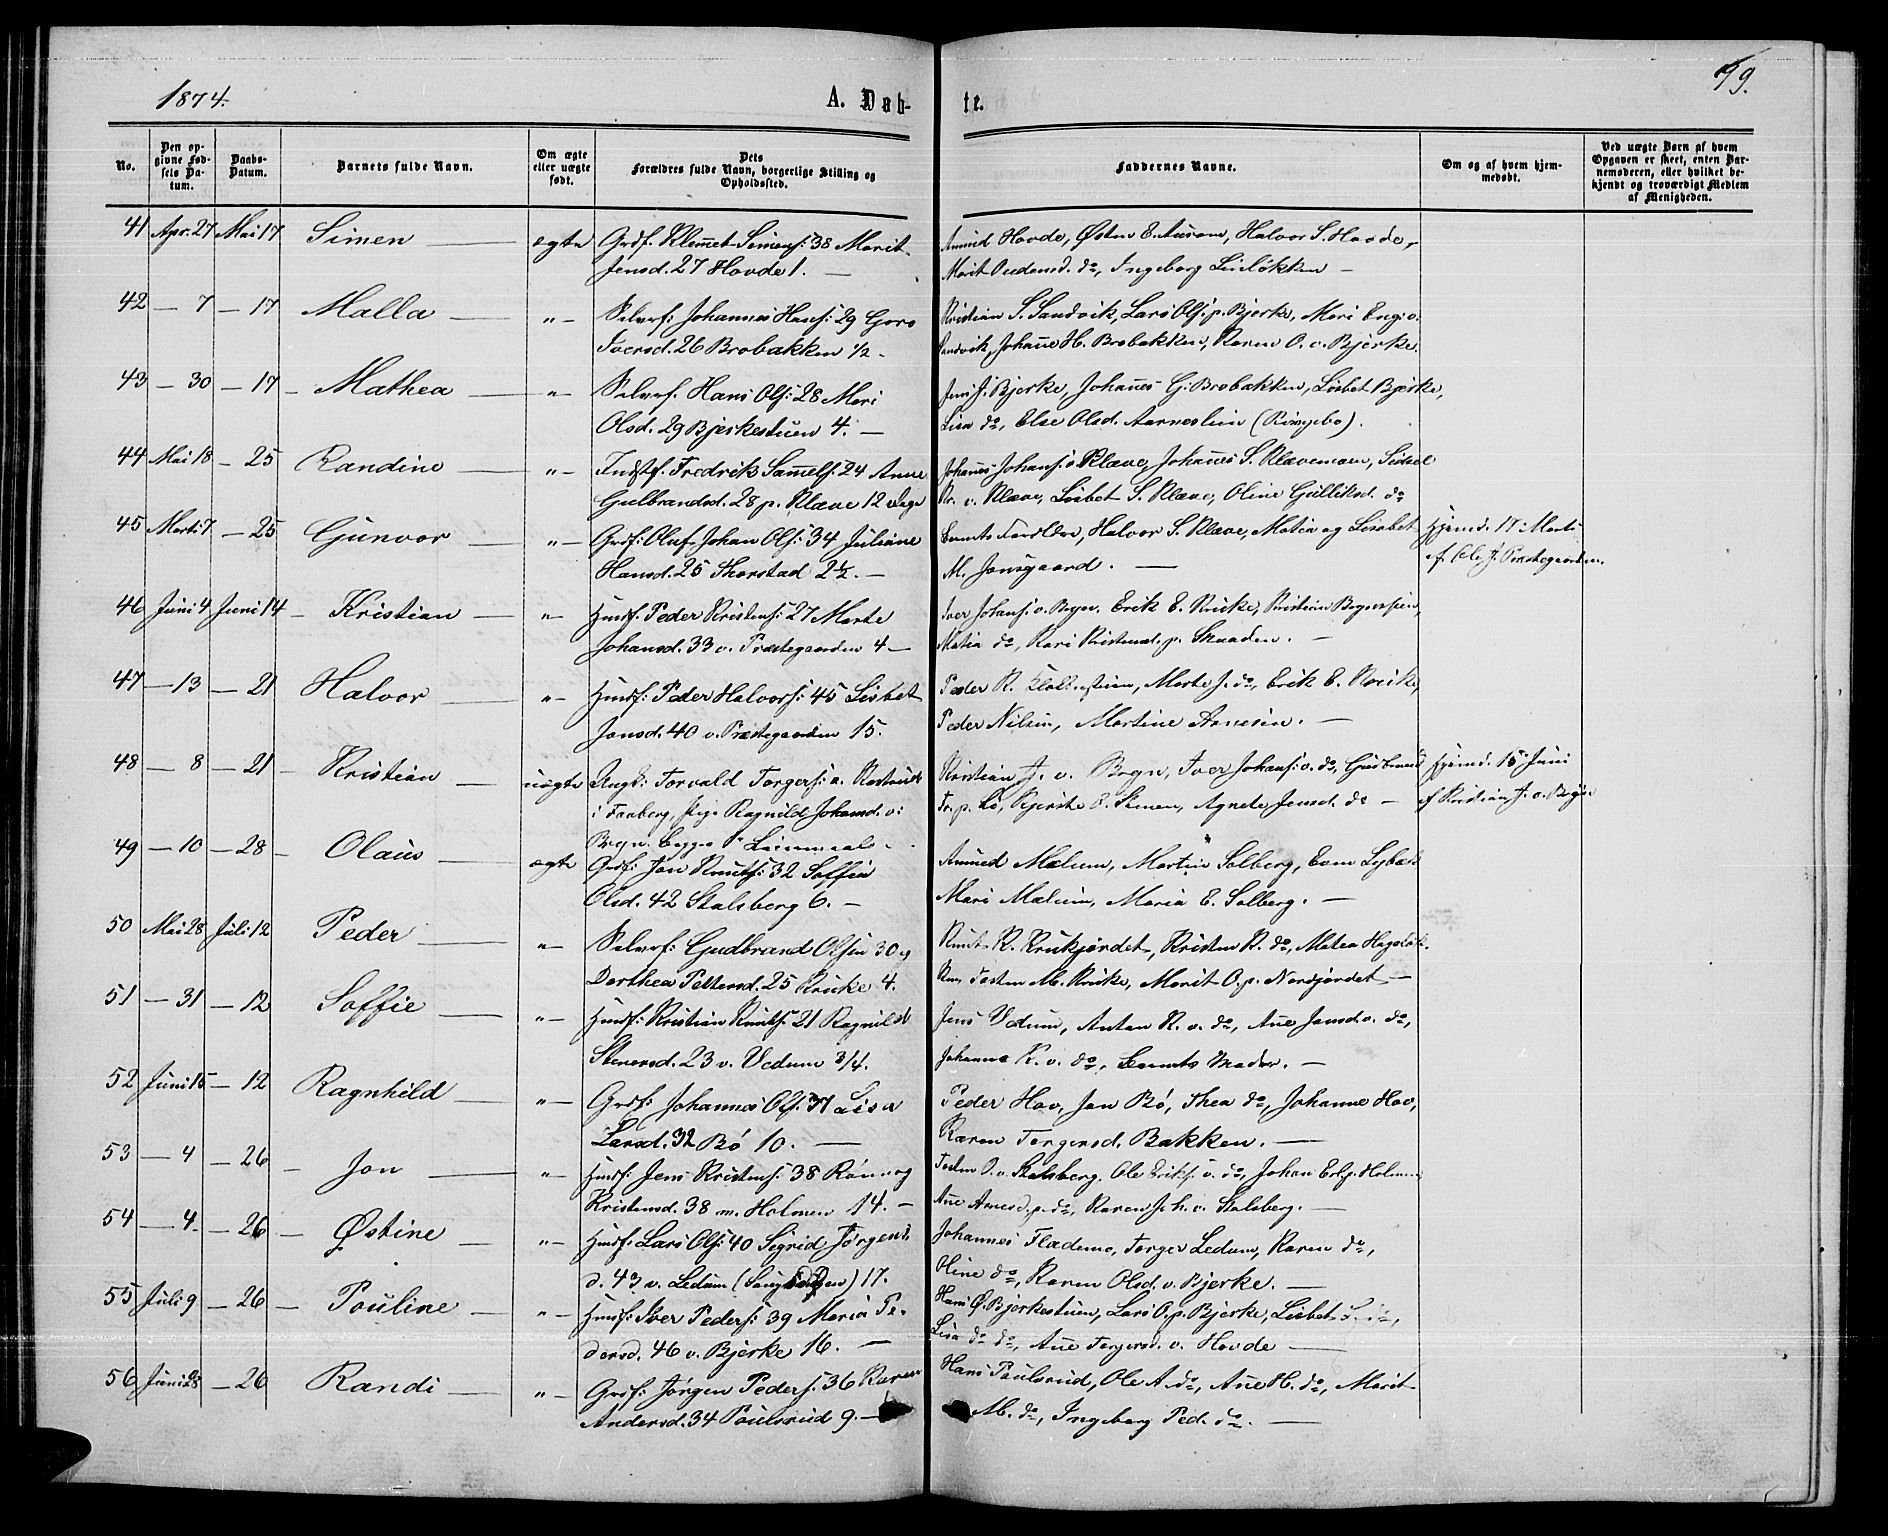 1874.
A. Døb-
te.
79.
No.
Den op-
givne Fød-
sels Da-
tum.
Daabs-
Datum.
Barnets fulde Navn.
Om ægte
eller uægte
født.
Dets
Forældres fulde Navn, borgerlige Stilling og
Opholdssted.
Faddernes Navne.
Om og af hvem hjem-
medøbt.
Ved uægte Børn af hvem
Opgaven er skeet, enten Bar-
nemoderen, eller hvilket be-
kjendt og troværdigt Medlem
af Menigheden.
41 Apr. 27 Mai 17 Simen — ægte Grdf. Klemet Simens: 38 Marit
Jensd. 27 Hovde 1. —
Amund Hovde, Østen E. Hovde,
Marit Audensd. do, Ingeborg Lieløkken —
42 — 7 — 17 Malla — „ — Selvf: Johannes Hans: 29 Goro
Iversd. 26 Brobakken ½ -
Kristian S. Sandvik, Lars Ols: p. Bjerke, Mari
Sandvik, Johanne H. Brobakken, Karen O. v. Bjerke.
43 — 30 — 17 — Mathea — „ — Selvf. Hans Ols: 28 Mari
Olsd. 29 Bjerkestuen 4. —
Jens J. Bjerke, Johannes G. Brobakken, Lisbet Bjerke,
Lisa do, Else Olsd. (Ringebo).
44 Mai 18 — 25 Randine — „ — Indstf. Fredrik Samuels: 24 Anne
Gulbrandsd. 28 p. Klæve 12
Johannes Johans: o Klæve, Johannes S. Klævemoen, Sidsel
Kr. v. Klæve, Lisbet S. Klæve, Oline Gulliksd. do
45 Marts 7 — 25 Gunvor — „ — Grdf: Oluf Johan Ols: 34 Juliane
Hansd. 25 Skorstad 2½. —
Barnets Forældre, Halvor S. Klæve, Matia og Lisabet
M. Jonsgaard. —
Hjemd. 17 Marts
af Ole J. Præstegaarden.
46 Juni 4 Juni 14 — Kristian — „ — Husf. Peder Kristens: 27 Marte
Johansd. 33 v. Præstegaarden 4 —
Iver Johans: v. Bryn, Erik E. Kruke, Kristian
Matia do, Kari Kristensd. p. —
47 — 13 — 21 Halvor — „ — Husf: Peder Halvors: 45 Lisbet
Jonsd. 40 v. Præstegaarden 15.
Peder K. Marte J. do, Erik E. Kruke,
Peder Nilsen, Martine Arnesen. —
48 — 8 — 21 — Kristian — uægte Ungk: Torvald Torgers: a.
i Faaberg, Pige Ragnild Johansd. v.
Bryn. Begge 1ste Leiermaal.
Kristian J. v. Bryn, Iver Johans: v. do, Gudbrand
p. Lø, Kjersti Agnete Jensd. do —
Hjemd. 15 Juni
af Kristian J. v. Bryn
49 — 10 — 28 — Olaus — ægte Grdf: Jon Knuts: 32 Soffie
Olsd. 42 Stalsberg 6. —
Amund Mælum, Martin Solberg, Even
Mari Mælum, Maria E. Solberg. —
50 Mai 28 Juli 12 Peder — „ Selvf: Gudbrand Olsen 30 og
Dorthea Pettersd. 25 Kruke 4.
Knut K. Krukjordet, Kristen K. do, Matea
Torsten M. Kruke, Marit O. p. Nordjordet —
51 — 31 — 12 Soffie — „ — Husf: Kristian Knuts: 21 Ragnild
Stenersd. 23 v. Vedum 3/4.
Jens Vedum, Anton K. v. do, Ane Jensd. v. do,
Johanna K. v. do, Barnets Moder. —
52 Juni 15 — 12 Ragnhild — „ — Grdf: Johannes Ols: 37 Lisa
Larsd. 32 Bø 10. —
Peder Hov, Jon Bø, Thea do, Johanne Hov,
Karen Torgersd. Bakken. —
53 — 4 — 26 — Jon — „ Husf: Jens Kristens: 38 Rønnog
Kristensd. 38 m. Holmen 14. —
Torsten O. v. Stalsberg, Ole Eriks: v. do, Johan Erl. p. Holmen
Ane Arnesd. p. do, Karen J. h. v. Stalsberg. —
54 — 4. — 26 — Østine — „ — Husf. Lars Ols: 40 Sigrid Jørgens
d. 43 v. Ledum 17.
Johannes Flademo, Torger Ledum, Karen do,
Oline do, Karen Olsd. v. Bjerke. —
55 Juli 9 — 26 — Pouline — „ — Husf: Iver Peders: 39 Maria Pe-
dersd. 46 v. Bjerke 16. —
Hans Ø. Bjerkestuen, Lars O. p. Bjerke, Lisbet
Lisa do do, Ane Torgersd. v. Hovde —
56 Juni 28 — 26 Randi — „ — Grdf: Jørgen Peders: 36 Karen
Andersd. 34 Poulsrud 9. —
Hans Poulsrud, Ole A. do, Ane H. do, Marit
M. do, Ingeborg Ped. do. —